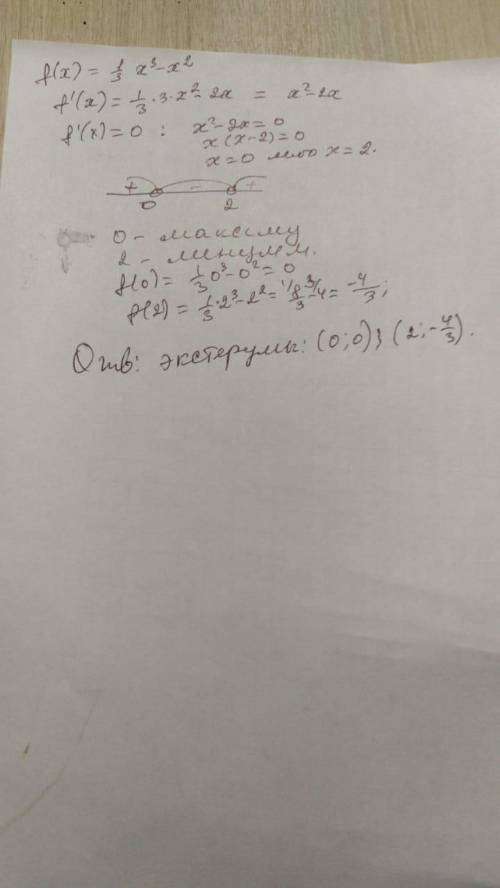 f(x) = 1/3 x³ - x²
f'(x) = 1/3 · 3 · x² - 2x = x² - 2x
f'(x) = 0 : x² - 2x = 0
x(x-2) = 0
x = 0 либо x = 2.
+ - +
0 2
0 - максиму
2 - минимум.
f(0) = 1/3 0³ - 0² = 0
f(2) = 1/3 · 2³ - 2² = 8/3 - 4 = -4/3;
Отв: экстерумы: (0;0) } (2; -4/3).